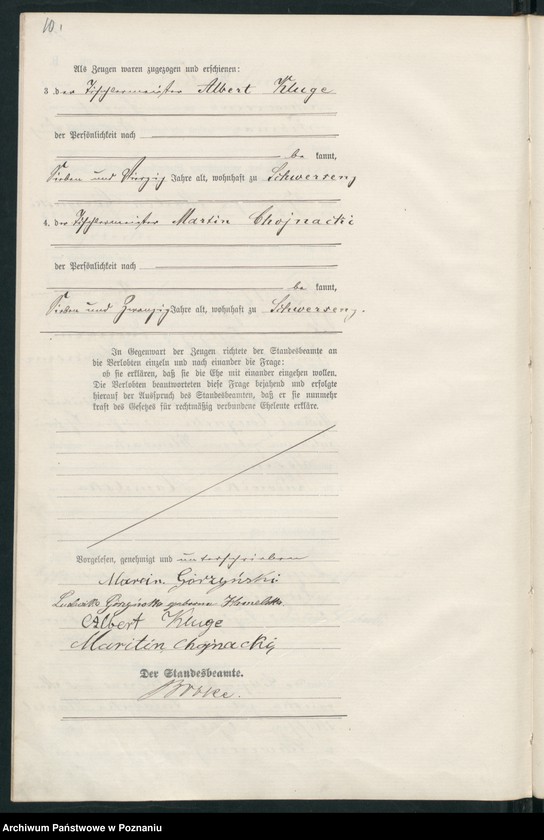 10.
Als Zeugen waren zugezogen und erschienen:
3. der Tischlermeister Albert Kluge
der Persönlichkeit nach
be kannt,
Sieben und Vierzig Jahre alt, wohnhaft zu Schwersenz
4. der Tischlermeister Martin Chojnacki
der Persönlichkeit nach
be kannt,
Sieben und Zwanzig Jahre alt, wohnhaft zu Schwersenz.
In Gegenwart der Zeugen richtete der Standesbeamte an
die Verlobten einzeln und nach einander die Frage:
ob sie erklären, daß sie die Ehe mit einander eingehen wollen.
Die Verlobten beantworteten diese Frage bejahend und erfolgte
hierauf der Ausspruch des Standesbeamten, daß er sie nunmehr
kraft des Gesetzes für rechtmäßig verbundene Eheleute erkläre.
Vorgelesen, genehmigt und unterschrieben
Marcin Górzyński
geborene
Albert Kluge
Maritin Chojnacki
Der Standesbeamte.
Archiwum Państwowe w Poznaniu